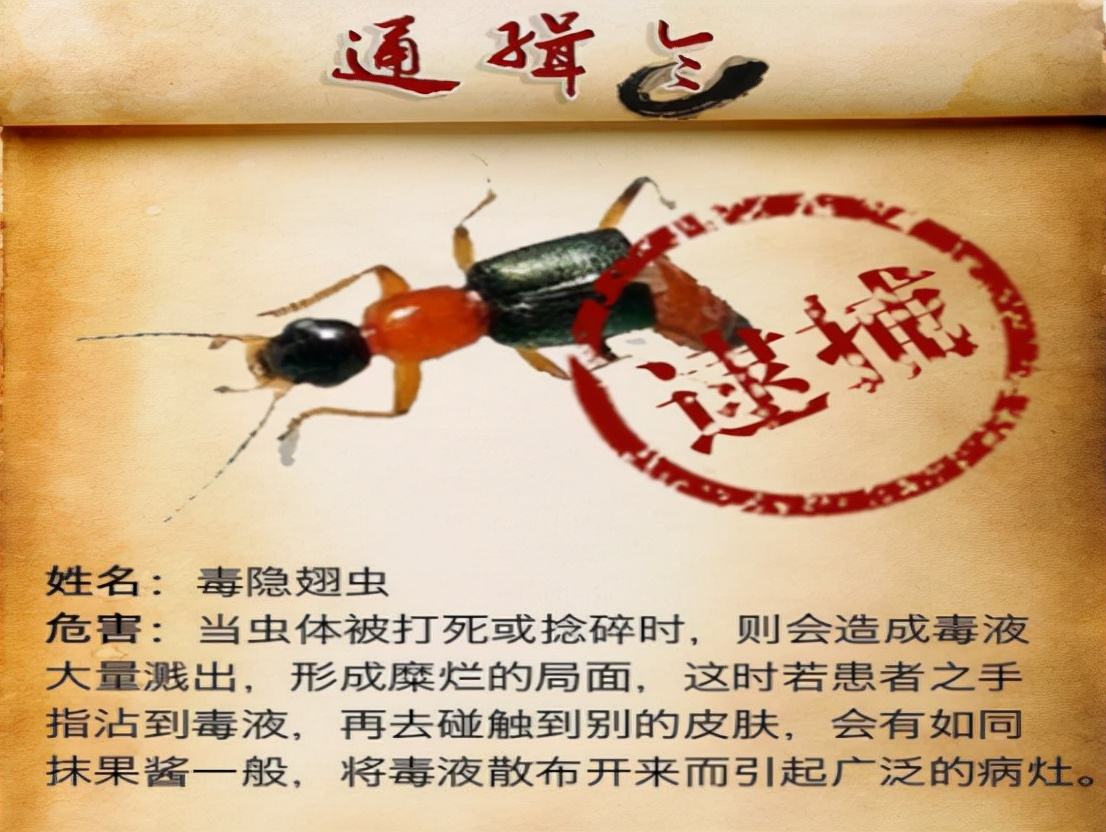 通缉令
速捕
姓名：毒隐翅虫
危害：当虫体被打死或捻碎时，则会造成毒液
大量溅出，形成糜烂的局面，这时若患者之手
指沾到毒液，再去碰触到别的皮肤，会有如同
抹果酱一般，将毒液散布开来而引起广泛的病灶。